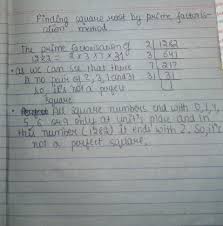 Finding square root by prime factoris-
ation method
The prime factorisation of
1282 = 2 x 3 x 7 x 31
2 | 1282
3 | 641
7 | 217
31 | 31
1
• As we can see that there
is no pair of 2, 3, 7 and 31
so, it's not a perfect
square
• All square numbers end with 0, 1, 4,
5, 6 or 9 only at unit's place and in
this number (1282) it ends with 2. So, it's
not a perfect square.